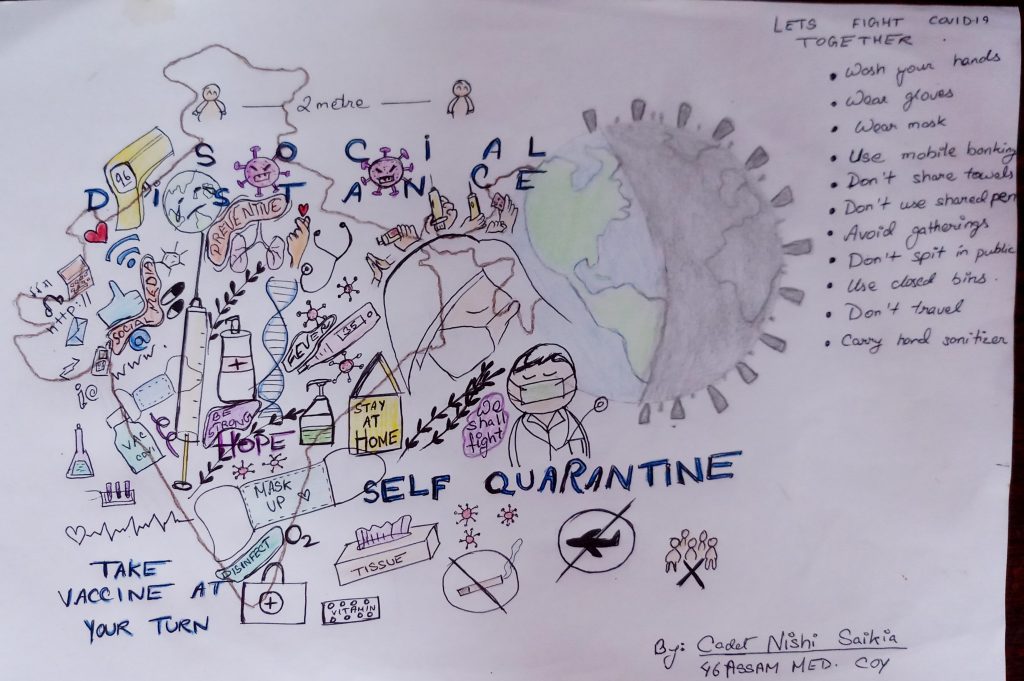 LETS FIGHT COVID19
TOGETHER.
• Wash your hands
• Wear gloves
• Wear mask
• Use mobile banking
• Don't share towels
• Don't use shared pen
• Avoid gatherings
• Don't spit in public
• Use closed bins.
• Don't travel
• Carry hand sanitizer
2 metre
SOCIAL
DiSTANCE
96
PREVENTIVE
http://
SOCIAL MEDIA
@
www.
i@
FEVER
35.0
BE
STRONG
HOPE
STAY
AT
HOME
We
shall
fight
VAC
COVI
MASK
UP
SELF QUARANTINE
O2
DISINFECT
TISSUE
VITAMIN
TAKE
VACCINE AT
YOUR TURN
By: Cadet Nishi Saikia
46 ASSAM MED. COY